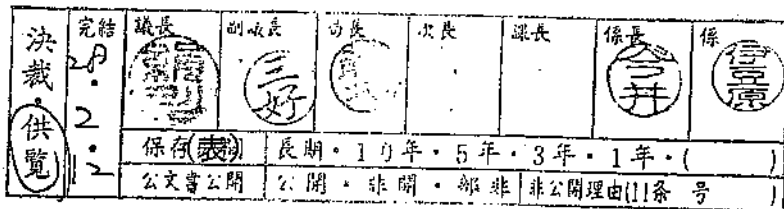 決裁・供覧
完結 28・2・2
議長 副議長 局長 次長 課長 係長 係
三好 今井 伊豆原
保存(表 長期・10年・5年・3年・1年・( )
公文書公開 公開・非開・部非 非公開理由(11条 号 )